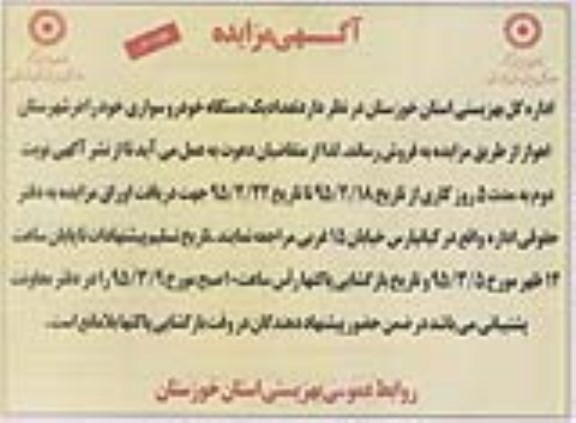 آگهی مزایده
اداره کل بهزیستی استان خوزستان در نظر دارد تعداد یک دستگاه خودرو سواری خود را در شهرستان
اهواز از طریق مزایده به فروش رساند. لذا از متقاضیان دعوت به عمل می آید تا از نشر آگهی نوبت
دوم به مدت ۵ روز کاری از تاریخ ۹۵/۲/۱۸ تا تاریخ ۹۵/۲/۲۲ جهت دریافت اوراق مزایده به دفتر
حقوقی اداره واقع در کیانپارس خیابان ۱۵ غربی مراجعه نمایند. تاریخ تسلیم پیشنهادات تا پایان ساعت
۱۴ ظهر مورخ ۹۵/۳/۵ و تاریخ بازگشایی پاکتها رأس ساعت ۱۰ صبح مورخ ۹۵/۳/۹ را در دفتر معاونت
پشتیبانی می باشد در ضمن حضور پیشنهاد دهندگان در وقت بازگشایی پاکتها بلامانع است.
روابط عمومی بهزیستی استان خوزستان